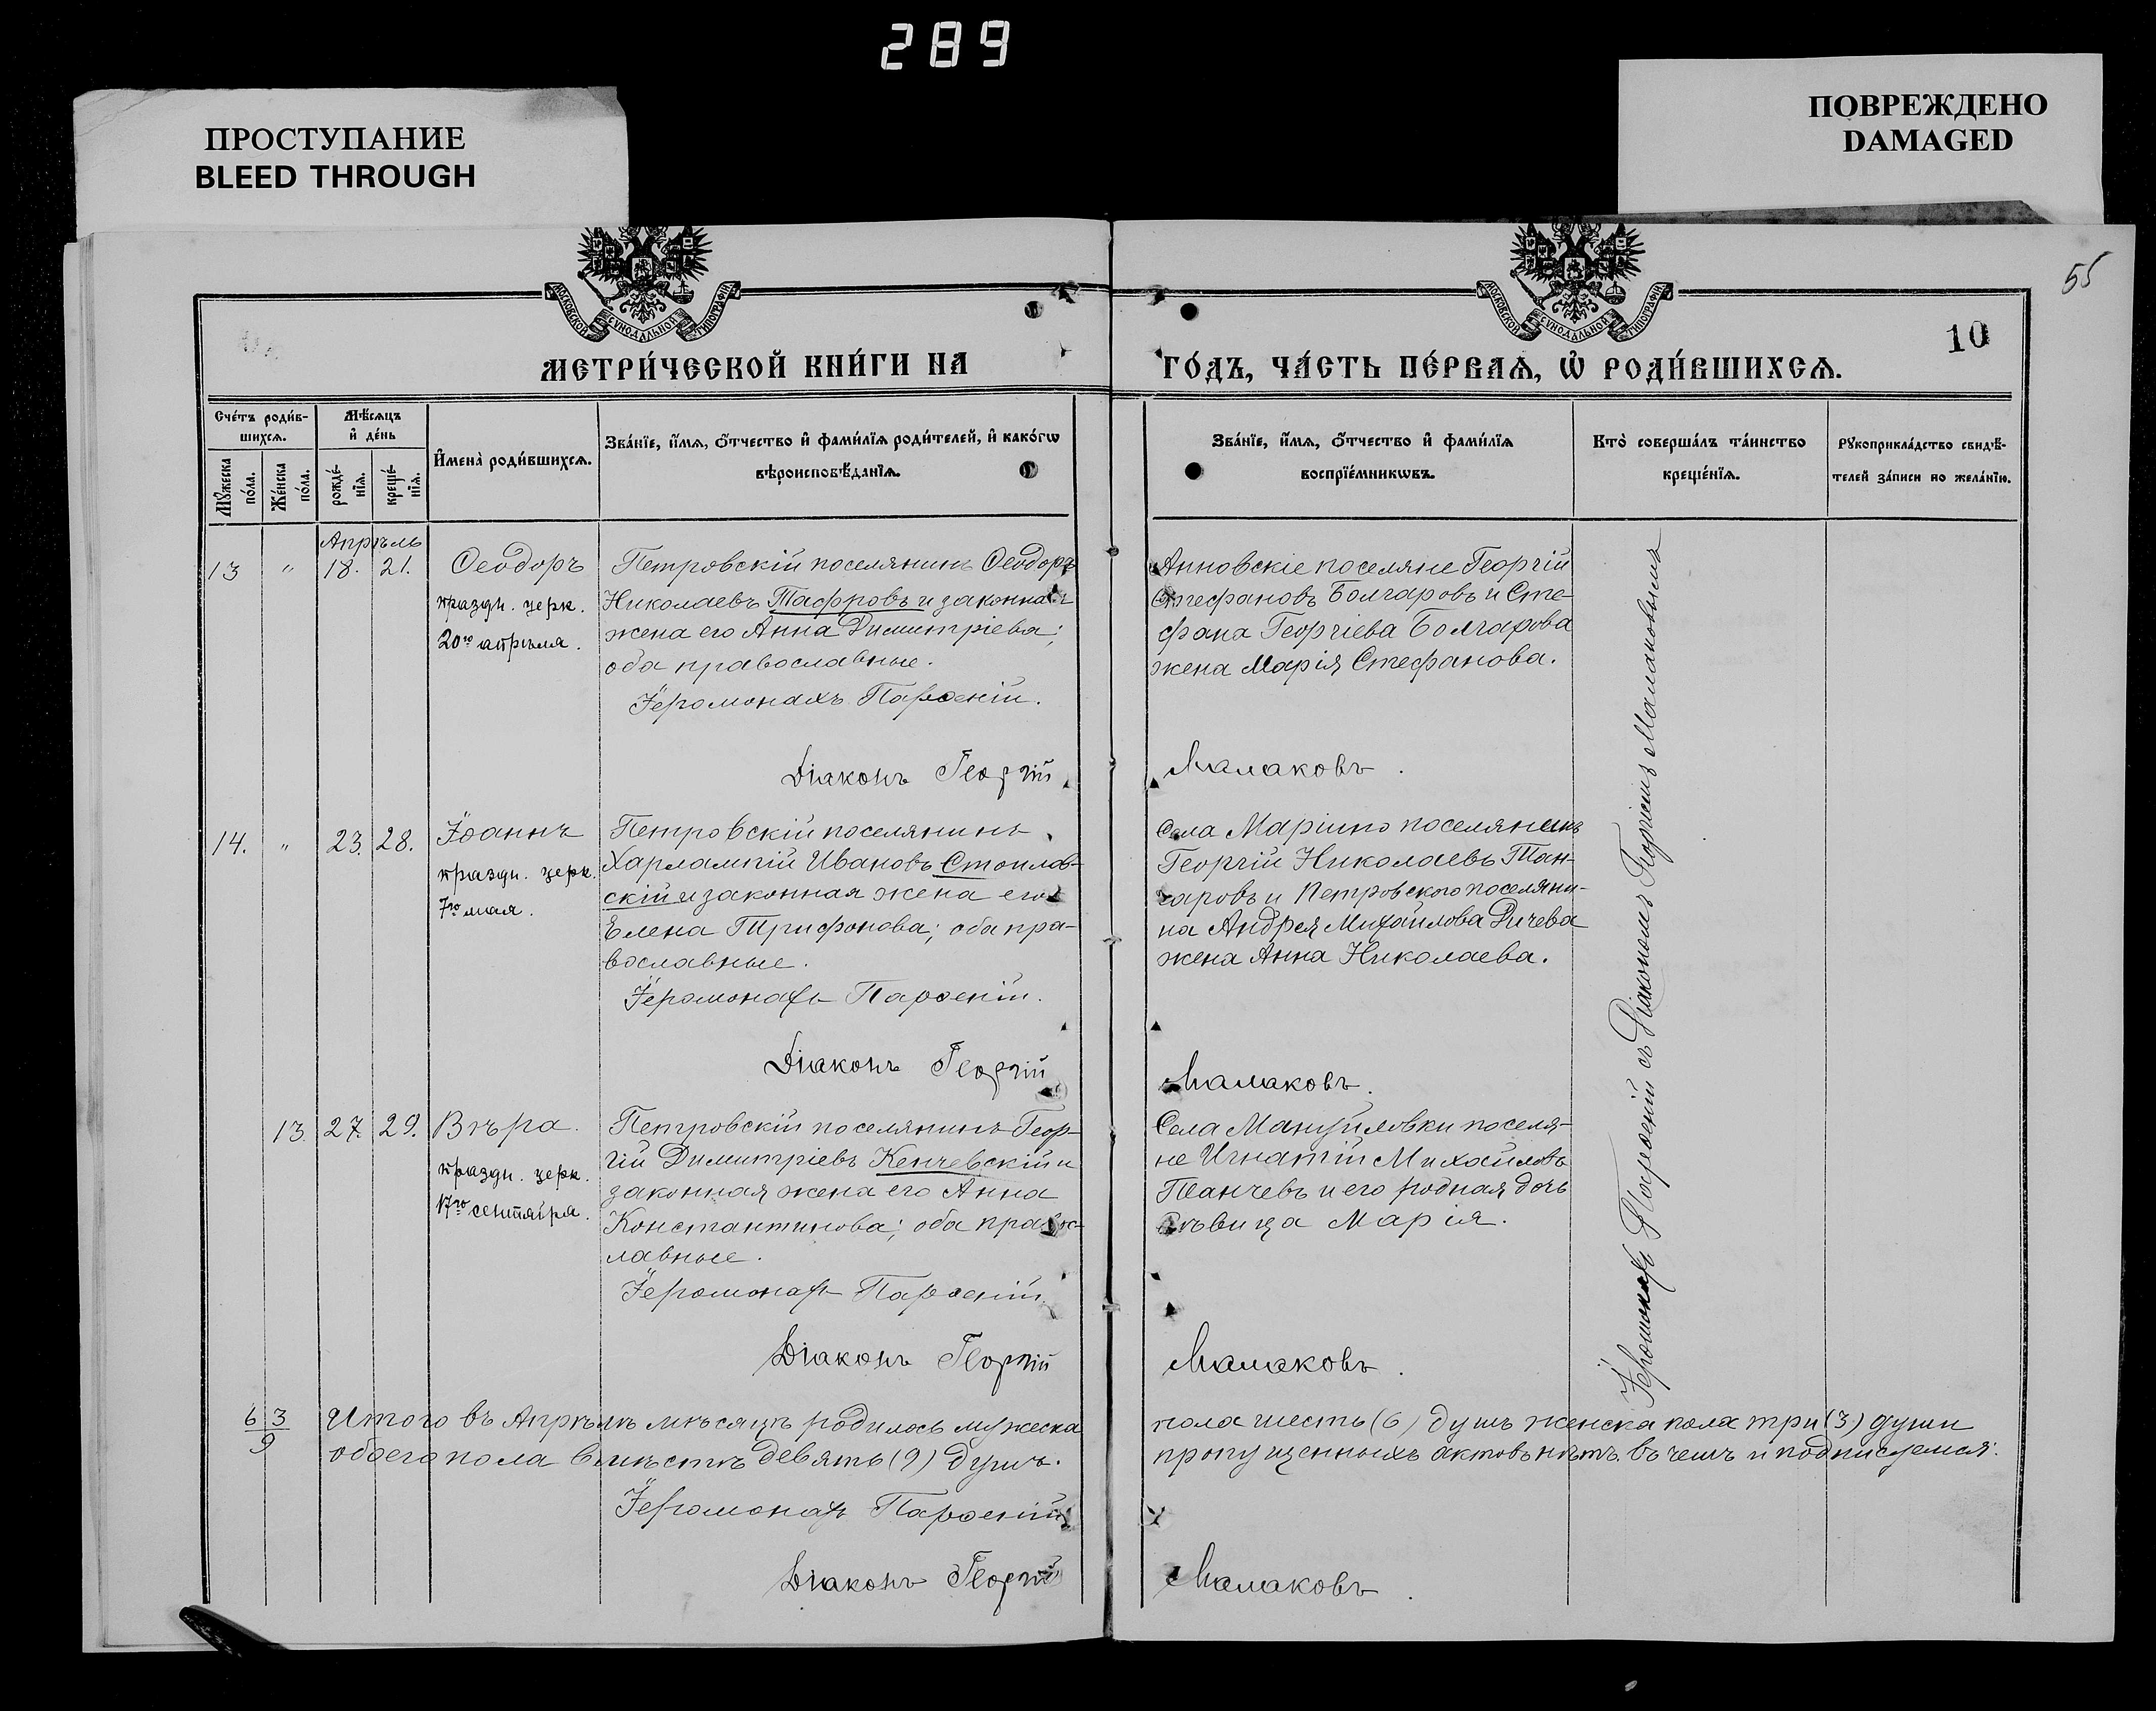 289
ПРОСТУПАНИЕ
BLEED THROUGH
ПОВРЕЖДЕНО
DAMAGED
МОСКОВСКОЙ СУНОДАЛЬНОЙ ТИПОГРАФІИ
МОСКОВСКОЙ СУНОДАЛЬНОЙ ТИПОГРАФІИ
55
10
МЕТРИ́ЧЕСКОЙ КНИ́ГИ НА
ГО́ДЪ, ЧА́СТЬ ПЕ́РВАѦ, Ѡ҆ РОДИ́ВШИХСѦ.
Сче́тъ роди́в-
шихсѧ.
Мꙋ́жеска по́ла.
Же́нска по́ла.
Мѣ́сѧцъ
и҆ де́нь
рожде́-
нїѧ.
креще́-
нїѧ.
И҆мена̀ роди́вшихсѧ.
Зва́нїе, и҆́мѧ, ѻ҆́тчество и҆ фами́лїѧ роди́телей, и҆ како́гѡ
вѣроисповѣ́данїѧ.
Зва́нїе, и҆́мѧ, ѻ҆́тчество и҆ фами́лїѧ
воспрїе́мникѡвъ.
Кто̀ соверша́лъ та́инство
креще́нїѧ.
Рꙋкоприкла́дство свидѣ́-
телей за́писи по жела́нїю.
Апрѣль
13 " 18. 21. Ѳеодоръ
праздн. церк.
20го апрѣля.
Петровскій поселянинъ Ѳеодоръ
Николаевъ Тафровъ и законная
жена его Анна Димитріева;
оба православные.
Іеромонахъ Парѳеній.
Діаконъ Георгій
Анновскіе поселяне Георгій
Стефановъ Болгаровъ и Сте-
фана Георгіева Болгарова
жена Марія Стефанова.
Мамаковъ.
14. " 23. 28. Іоаннъ
праздн. церк.
7го мая.
Петровскій поселянинъ
Харлампій Ивановъ Стоилов-
скій и законная жена его
Елена Трифонова; оба пра-
вославные.
Іеромонахъ Парѳеній.
Діаконъ Георгій
Села Маріино поселянинъ
Георгій Николаевъ Тан-
гаровъ и Петровского поселяни-
на Андрея Михайлова Дичева
жена Анна Николаева.
Мамаковъ.
13 27. 29. Вѣра.
праздн. церк.
17го сентября.
Петровскій поселянинъ Геор-
гій Димитріевъ Кенчевскій и
законная жена его Анна
Константинова; оба правос-
лавные.
Іеромонахъ Парѳеній.
Діаконъ Георгій
Села Мануйловки поселя-
не Игнатій Михайловъ
Панчевъ и его родная дочь
дѣвица Марія.
Мамаковъ.
Іеромонахъ Парѳеній съ Діакономъ Георгіемъ Мамаковымъ
6 3
9
Итого въ Апрѣлѣ мѣсяцѣ родилось мужеска
обоего пола вмѣстѣ девять (9) душъ.
пола шесть (6) душъ женска пола три (3) души
пропущенныхъ актовъ нѣтъ. Въ чемъ и подписуемся:
Іеромонахъ Парѳеній
Діаконъ Георгій
Мамаковъ.